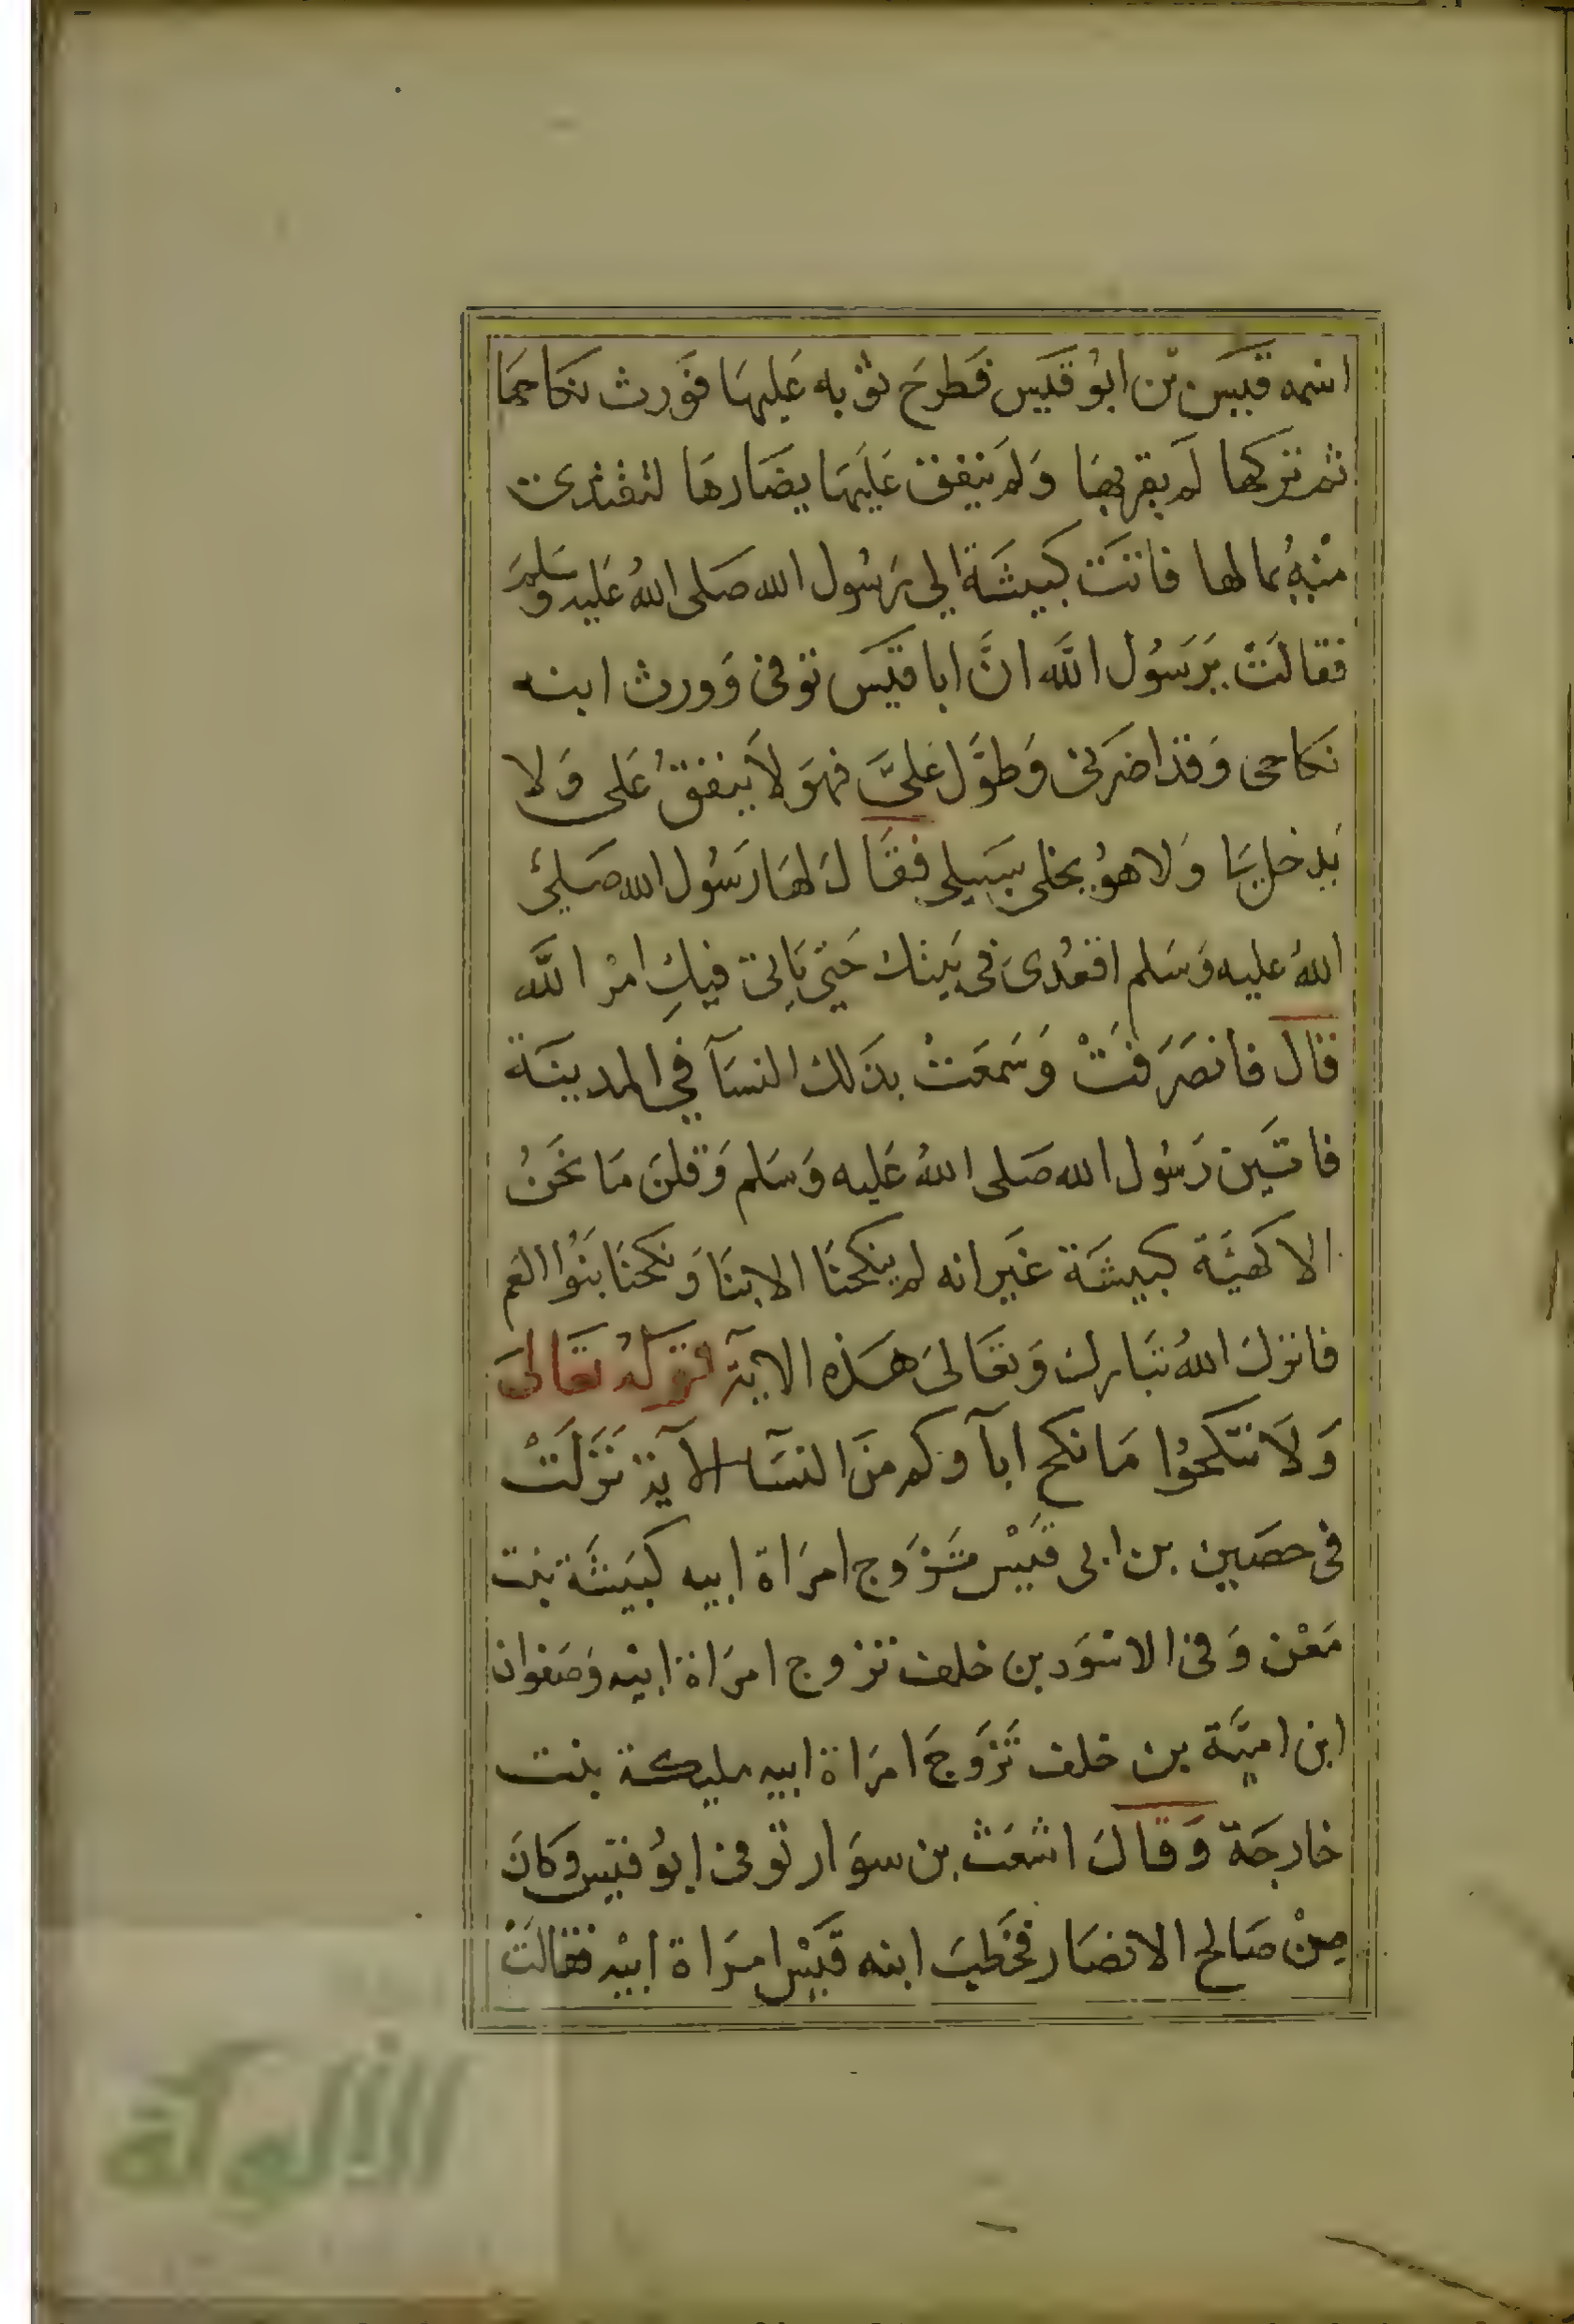 اسمه قيس بن ابو قيس فطرح ثوبه عليها فورث نكاحها
ثم تركها لم يقربها ولم ينفق عليها يضارها لتفتدى
منه بمالها فاتت كبيشة الى رسول الله صلى الله عليه وسلم
فقالت يرسول الله ان ابا قيس توفى وورث ابنه
نكاحى وقد اضرنى وطول علي فهو لا ينفق على ولا
يدخل بيا ولا هو يخلى سبيلى فقال لها رسول الله صلى
الله عليه وسلم اقعدى فى بيتك حتى ياتى فيك امر الله
قال فانصرفت وسمعت بذلك النسآ في المدينة
فاتين رسول الله صلى الله عليه وسلم وقلن ما نحن
الا كهئية كبيشة غير انه لم ينكحنا الابنا ونكحنا بنوا العم
فانزل الله تبارك وتعالى هذه الاية قوله تعالى
ولا تنكحوا ما نكح ابآوكم من النسآ الآية نزلت
فى حصين بن ابى قيس تزوج امراة ابيه كبيشة بنت
معن وفى الاسود بن خلف تزوج امراة ابيه وصفوان
ابن امية بن خلف تزوج امراة ابيه مليكة بنت
خارجة وقال اشعث بن سوار توفى ابو قيس وكان
من صالح الانصار فخطب ابنه قيس امراة ابيه فقالت
الألوكة